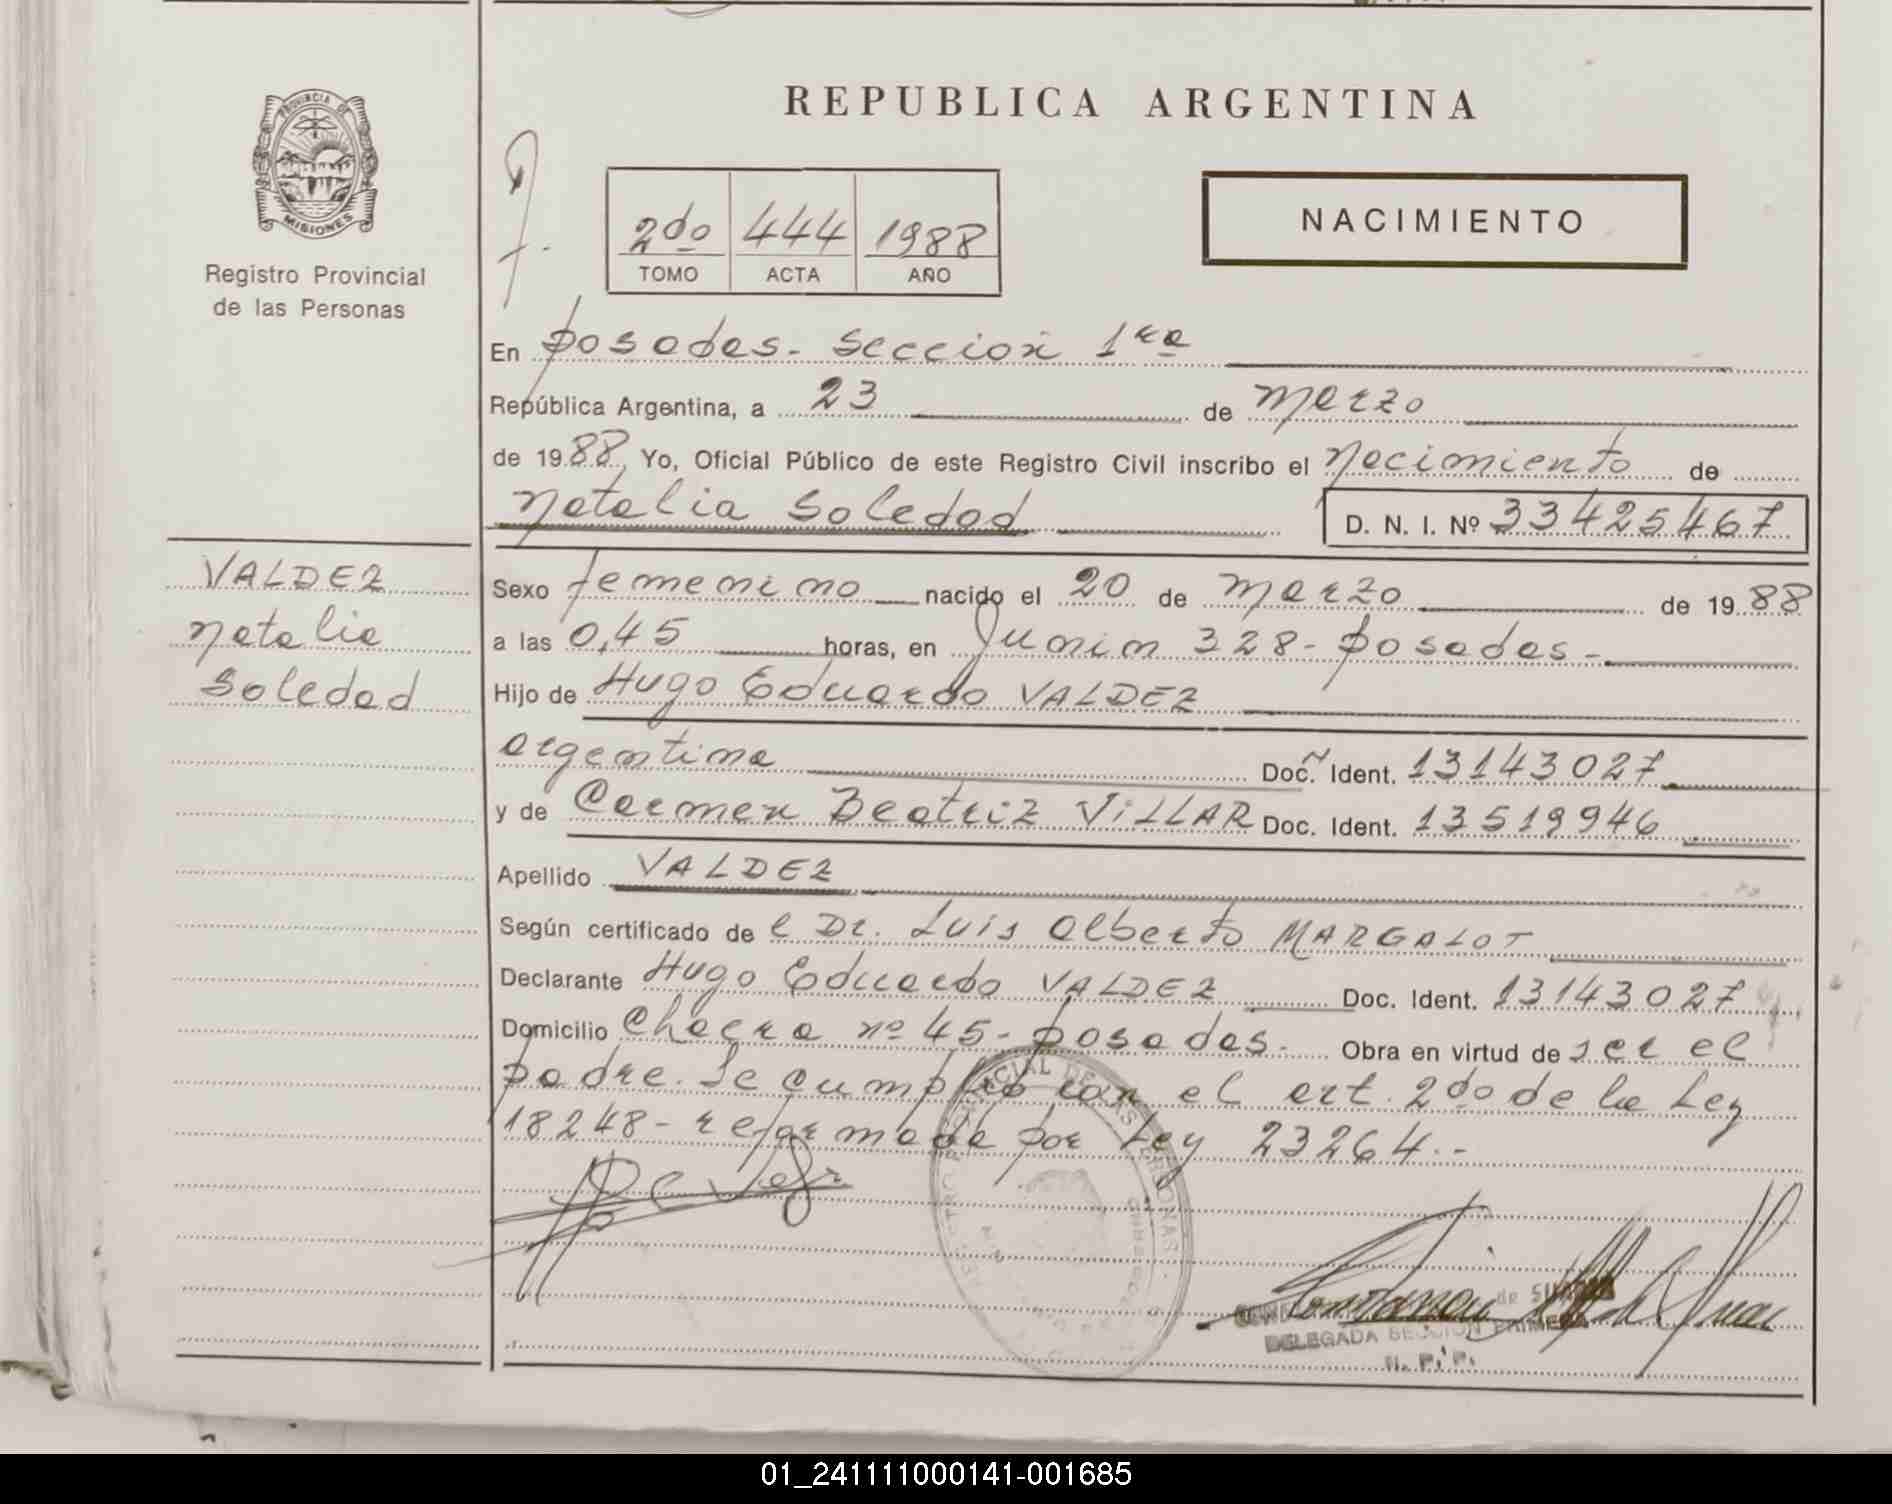 REPUBLICA ARGENTINA
PROVINCIA DE
MISIONES
Registro Provincial
de las Personas
2do 444 1988
TOMO ACTA AÑO
NACIMIENTO
En Posadas - Seccion 1ra
República Argentina, a 23 de Marzo
de 1988 Yo, Oficial Público de este Registro Civil inscribo el Nacimiento de
Natalia Soledad D. N. I. Nº 33425467
VALDEZ
Natalia
Soledad
Sexo femenino nacido el 20 de Marzo de 1988
a las 0,45 horas, en Junin 328 - Posadas -
Hijo de Hugo Eduardo VALDEZ
argentina Doc. Ident. 13143027
y de Carmen Beatriz ViLLAR Doc. Ident. 13519946
Apellido VALDEZ
Según certificado de l Dr. Luis Alberto MARGALOT
Declarante Hugo Eduardo VALDEZ Doc. Ident. 13143027
Domicilio Chacra nº 45 - Posadas. Obra en virtud de ser el
padre. Se cumplió con el art. 2do de la Ley
18248 - reformada por Ley 23264.-
DELEGADA SECCION PRIMERA
R. P. P.
01_241111000141-001685